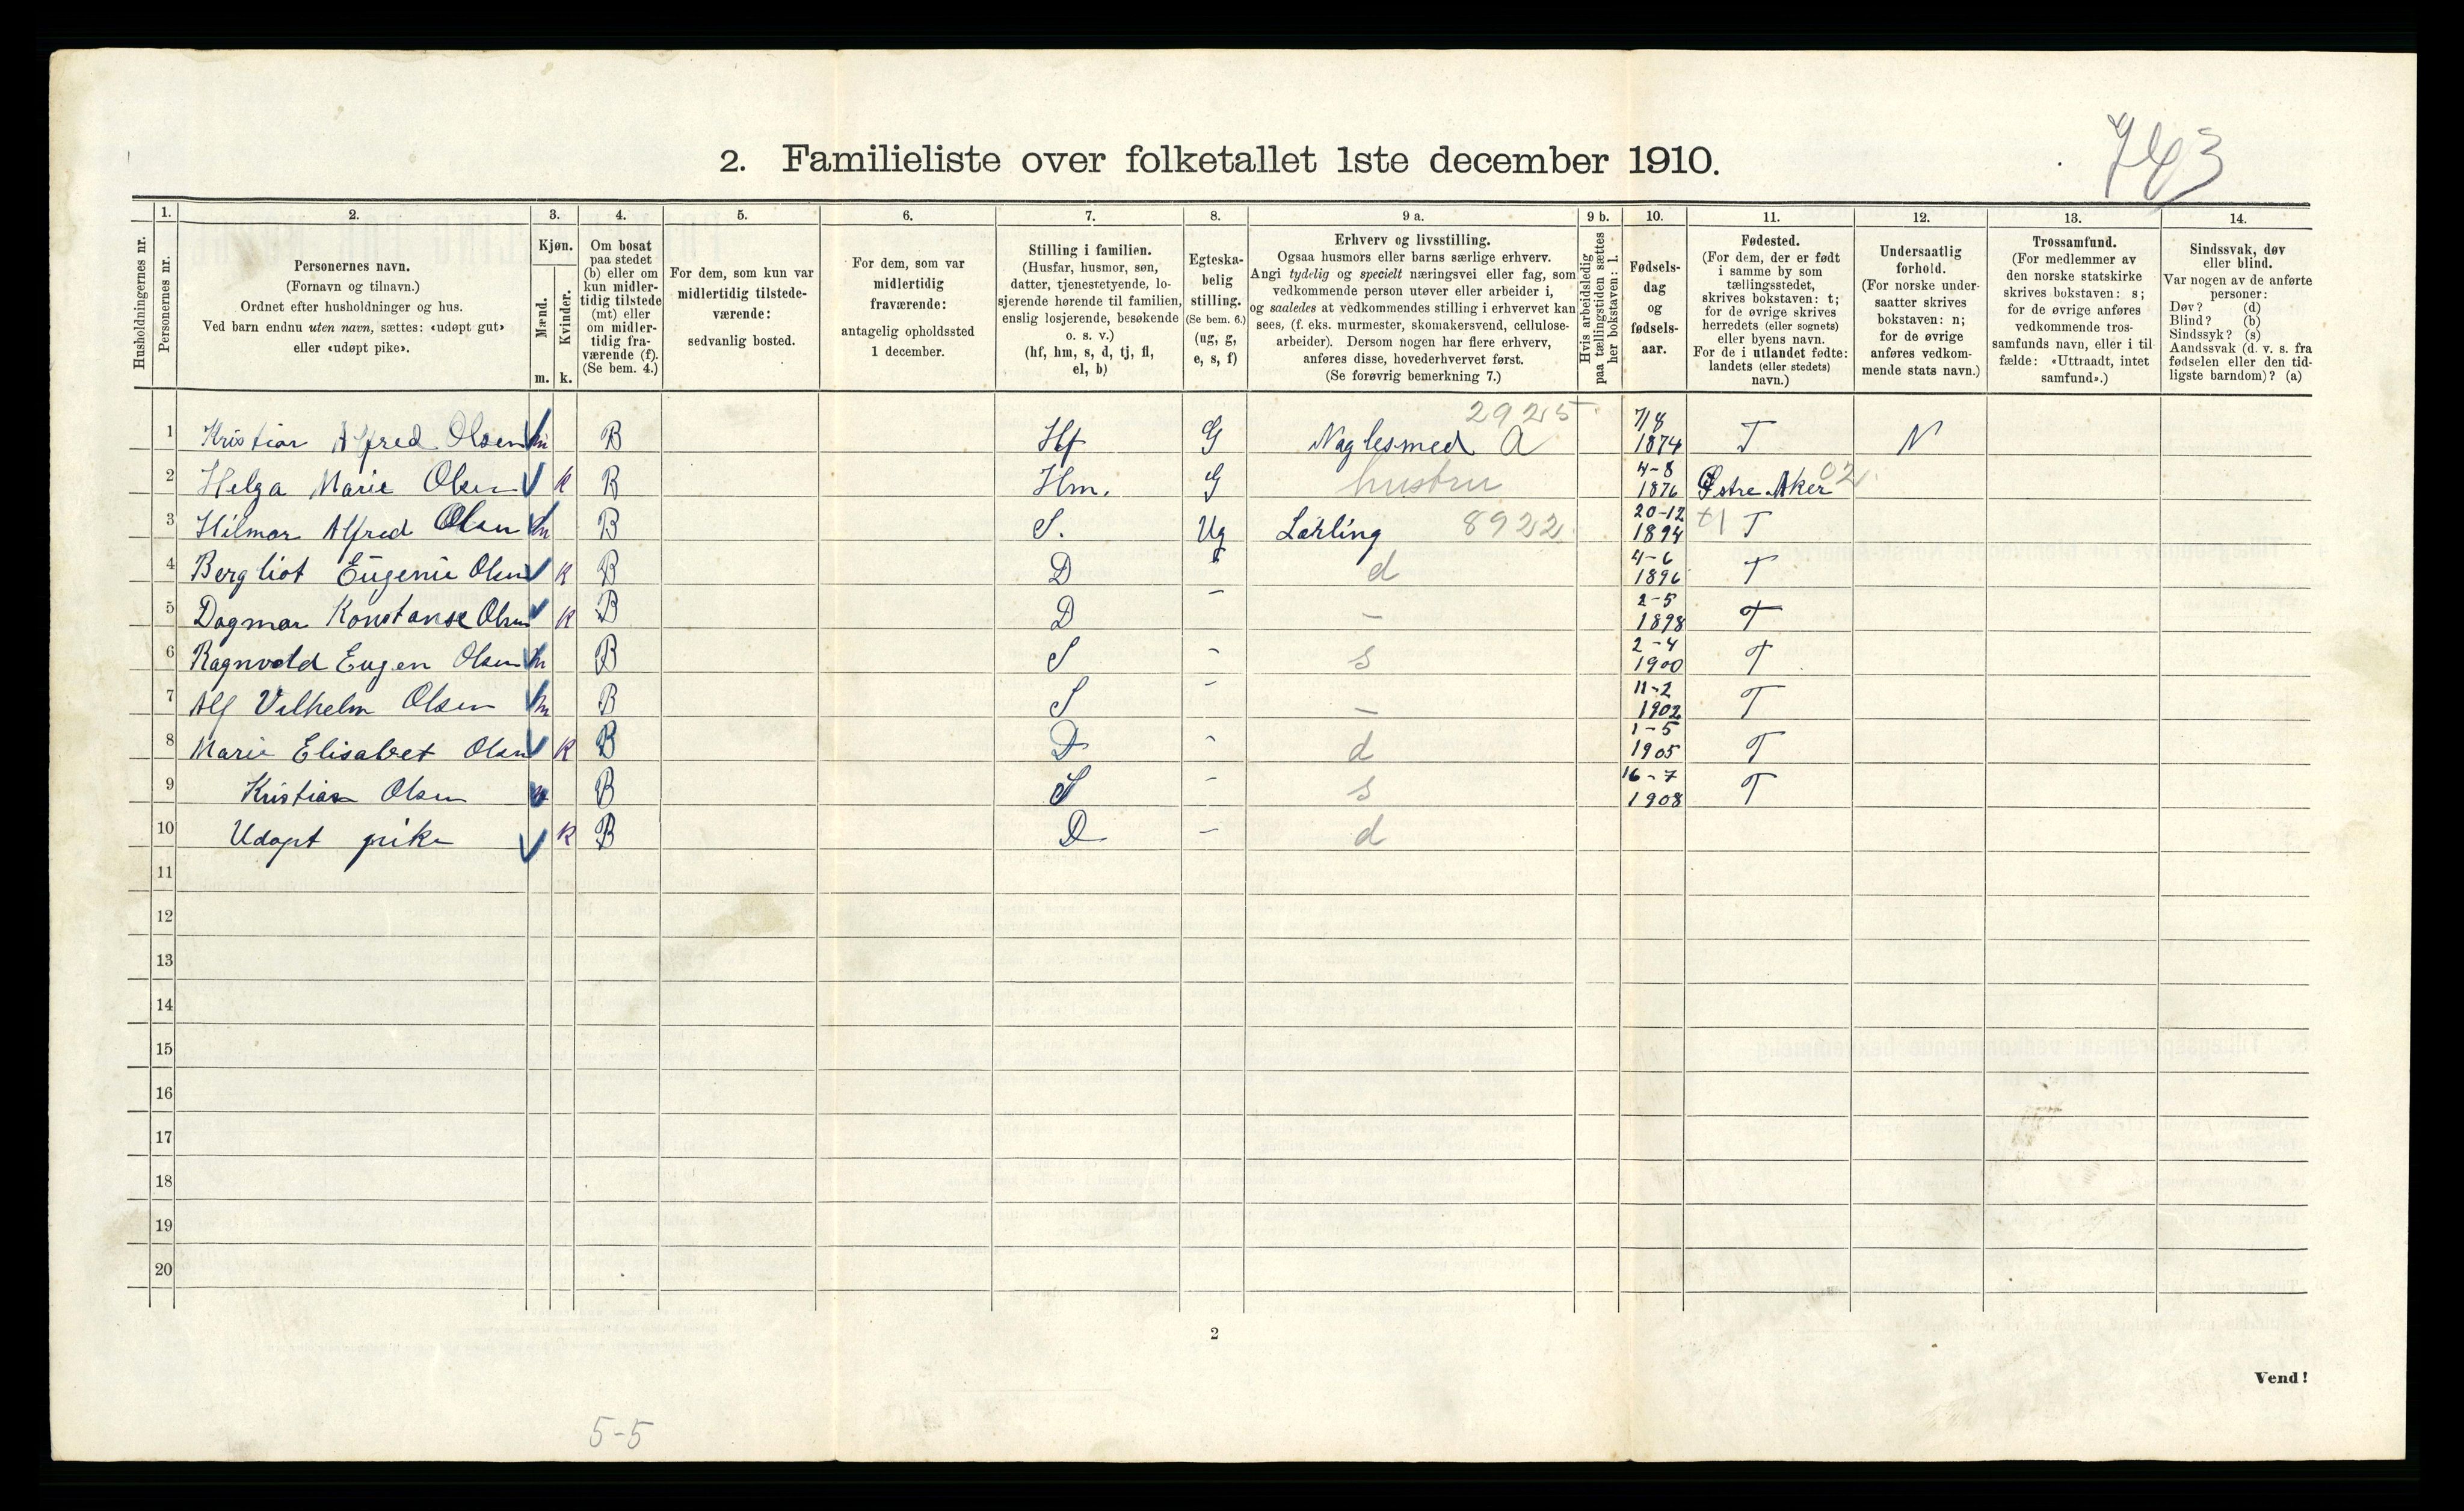 743
2. Familieliste over folketallet 1ste december 1910.
1. 2. 3. 4. 5. 6. 7. 8. 9 a. 9 b. 10. 11. 12. 13. 14.
Husholdningernes nr.
Personernes nr.
Personernes navn.
(Fornavn og tilnavn.)
Ordnet efter husholdninger og hus.
Ved barn endnu uten navn, sættes: «udøpt gut»
eller «udøpt pike».
Kjøn.
Mænd.
Kvinder.
m. k.
Om bosat
paa stedet
(b) eller om
kun midler-
tidig tilstede
(mt) eller
om midler-
tidig fra-
værende (f).
(Se bem. 4.)
For dem, som kun var
midlertidig tilstede-
værende:
sedvanlig bosted.
For dem, som var
midlertidig
fraværende:
antagelig opholdssted
1 december.
Stilling i familien.
(Husfar, husmor, søn,
datter, tjenestetyende, lo-
sjerende hørende til familien,
enslig losjerende, besøkende
o. s. v.)
(hf, hm, s, d, tj, fl,
el, b)
Egteska-
belig
stilling.
(Se bem. 6.)
(ug, g,
e, s, f)
Erhverv og livsstilling.
Ogsaa husmors eller barns særlige erhverv.
Angi tydelig og specielt næringsvei eller fag, som
vedkommende person utøver eller arbeider i,
og saaledes at vedkommendes stilling i erhvervet kan
sees, (f. eks. murmester, skomakersvend, cellulose-
arbeider). Dersom nogen har flere erhverv,
anføres disse, hovederhvervet først.
(Se forøvrig bemerkning 7.)
Hvis arbeidsledig
paa tællingstiden sættes
her bokstaven: l.
Fødsels-
dag
og
fødsels-
aar.
Fødested.
(For dem, der er født
i samme by som
tællingsstedet,
skrives bokstaven: t;
for de øvrige skrives
herredets (eller sognets)
eller byens navn.
For de i utlandet fødte:
landets (eller stedets)
navn.)
Undersaatlig
forhold.
(For norske under-
saatter skrives
bokstaven: n;
for de øvrige
anføres vedkom-
mende stats navn.)
Trossamfund.
(For medlemmer av
den norske statskirke
skrives bokstaven: s;
for de øvrige anføres
vedkommende tros-
samfunds navn, eller i til-
fælde: «Uttraadt, intet
samfund».)
Sindssvak, døv
eller blind.
Var nogen av de anførte
personer:
Døv? (d)
Blind? (b)
Sindssyk? (s)
Aandssvak (d. v. s. fra
fødselen eller den tid-
ligste barndom)? (a)
1 Kristian Alfred Olsen m B Hf G Naglesmed A 2925 7/8 1874 T N
2 Helga Marie Olsen k B Hm. G hustru 4-8 1876 Østre Aker 02
3 Hilmar Alfred Olsen m B S. Ug Lærling 8922 20-12 1894 T
4 Bergliot Eugenie Olsen k B D d 4-6 1896 T
5 Dagmar Konstanse Olsen k B D - - 2-5 1898 T
6 Ragnvald Eugen Olsen m B S - s 2-4 1900 T
7 Alf Vilhelm Olsen m B S - - 11-2 1902 T
8 Marie Elisabet Olsen k B D - d 1-5 1905 T
9 Kristian Olsen m B S - s 16-7 1908 T
10 Udøpt pike k B D - d
11
12
13
14
15
16
17
18
19
20
2
Vend!
5-5